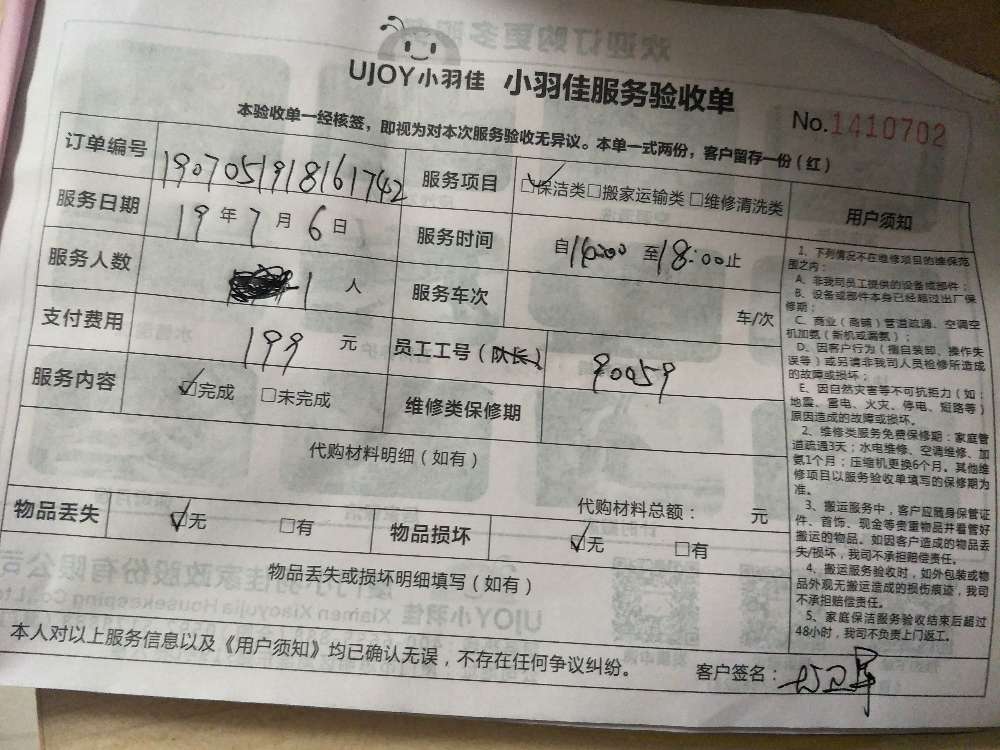 UJOY小羽佳 小羽佳服务验收单
No.1410702
本验收单一经核签，即视为对本次服务验收无异议。本单一式两份，客户留存一份（红）
订单编号 1907051918161742 服务项目 □保洁类□搬家运输类 □维修清洗类
服务日期 19年7月6日 服务时间 自14:00至18:00止
服务人数 1人 服务车次 车/次
支付费用 199元 员工工号（队长） 90059
服务内容 ☑完成 □未完成 维修类保修期
代购材料明细（如有）
代购材料总额： 元
物品丢失 ☑无 □有 物品损坏 ☑无 □有
物品丢失或损坏明细填写（如有）
本人对以上服务信息以及《用户须知》均已确认无误，不存在任何争议纠纷。
客户签名：
用户须知
1、下列情况不在维修项目的维保范
围之内：
A、非我司员工提供的设备或部件；
B、设备或部件本身已经超过出厂保
修期；
C、商业（商铺）管道疏通、空调空
机加氨（新机或漏氨）；
D、因客户行为（擅自装卸、操作失
误等）或另请非我司人员检修所造成
的故障或损坏；
E、因自然灾害等不可抗拒力（如：
地震、雷电、火灾、停电、短路等）
原因造成的故障或损坏。
2、维修类服务免费保修期：家庭管
道疏通3天；水电维修、空调维修、加
氨1个月；压缩机更换6个月。其他维
修项目以服务验收单填写的保修期为
准。
3、搬运服务中，客户应随身保管证
件、首饰、现金等贵重物品并看管好
搬运的物品。如因客户造成的物品丢
失/损坏，我司不承担赔偿责任。
4、搬运服务验收时，如外包装或物
品外观无搬运造成的损伤痕迹，我司
不承担赔偿责任。
5、家庭保洁服务验收结束后超过
48小时，我司不负责上门返工。